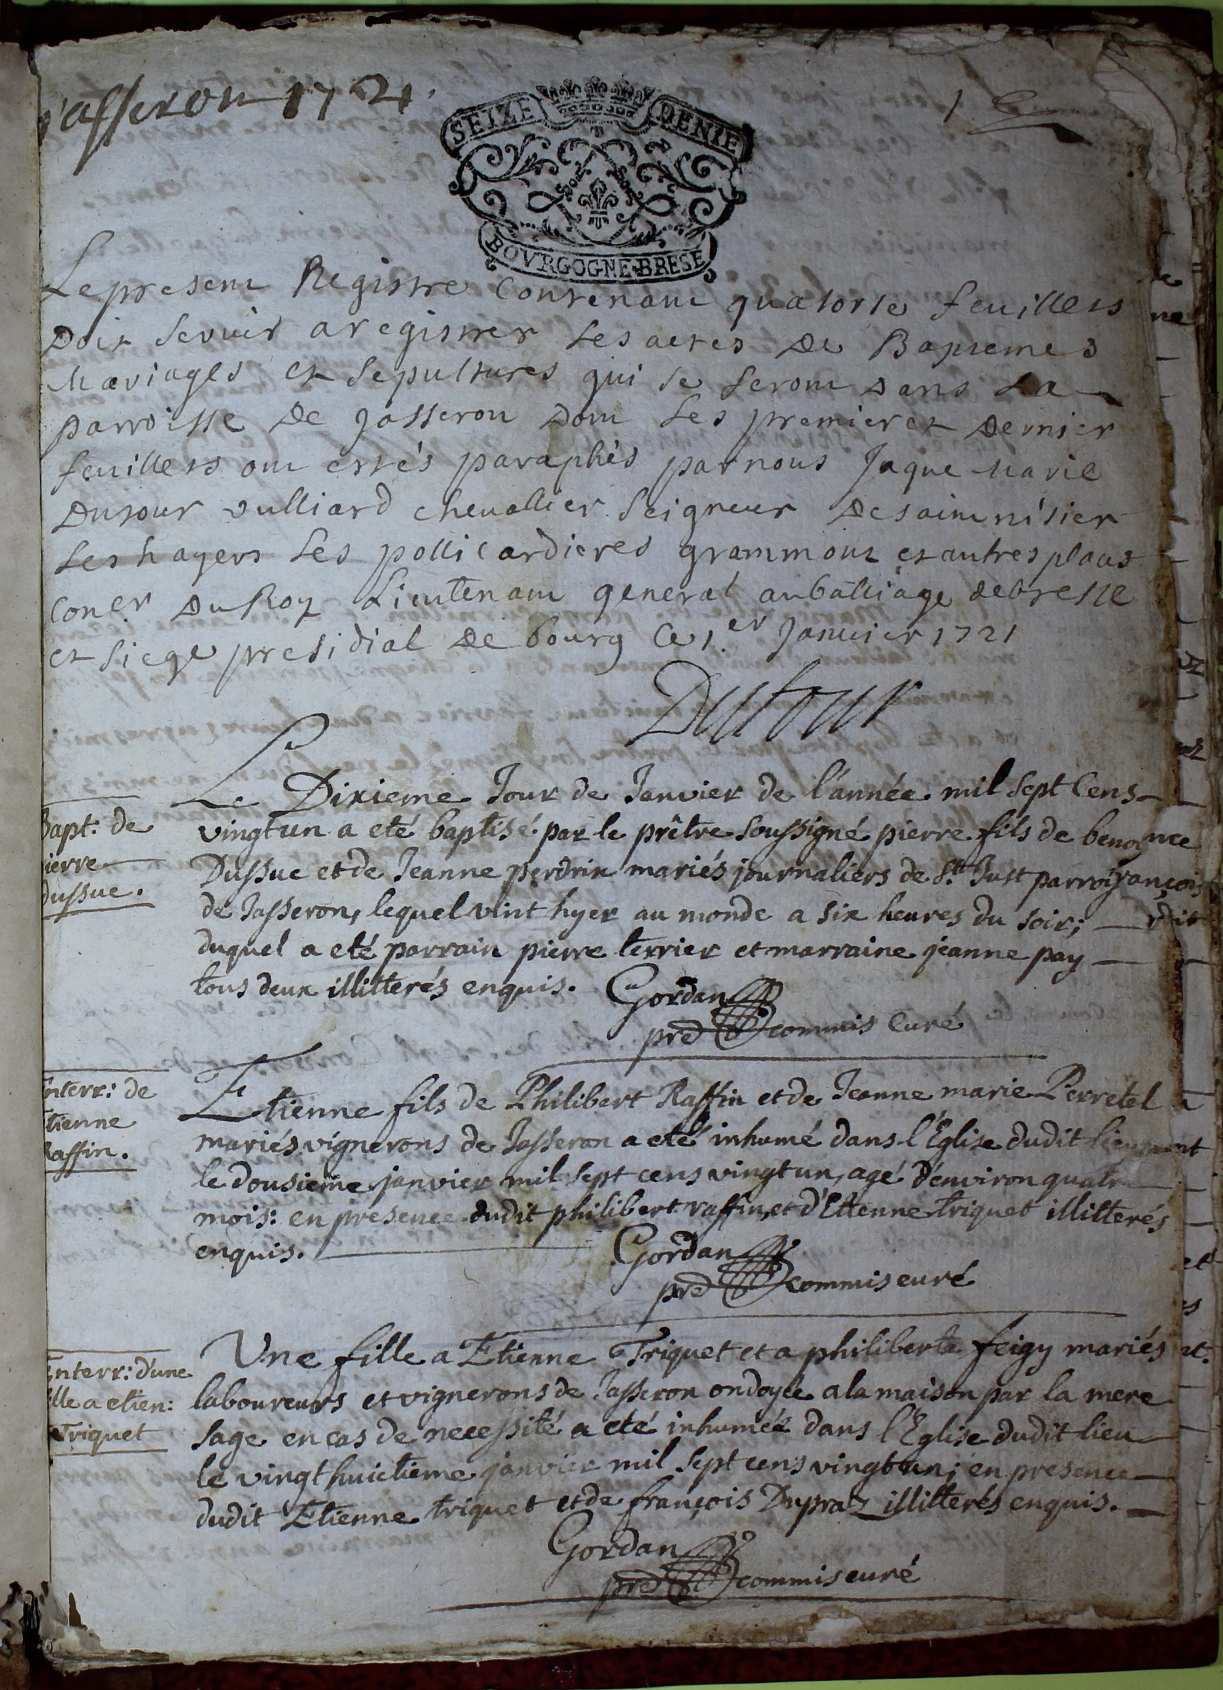 Jasseron 1721.
1
SEIZE DENIE
BOVRGOGNE·BRESE
Le present Registre Contenant quatorse feuillets
Doit servir a registrer Les actes De Baptemes
Mariages et sepultures qui se feront dans La
parroisse De Jasseron Dont Les premier et Dernier
feuillets ont estés paraphés par nous Jaque Marie
Dutour vulliard chevallier Seigneur De saint nisier
Les hayers Les pollicardieres grammont et autres places
Coner Du Roy Lieutenant general au balliage de bresse
et siege presidial De bourg Ce 1.er Janvier 1721
Dutour
Bapt: de
pierre
Dussuc.
Le Dixieme Jour de Janvier de l'année mil sept Cens
vingt un a eté baptisé par le prêtre soussigné pierre fils de benoi
Dussuc et de Jeanne perdrix mariés journaliers de St. Just parroi
de Jasseron, lequel vint hyer au monde a six heures du soir;
duquel a eté parrain pierre terrier et marraine jeanne pay
tous deux illitterés enquis. Gordan
pre commis Curé
Enterr: de
Etienne
Raffin.
Etienne fils de Philibert Raffin et de Jeanne marie Perretel
mariés vignerons de Jasseron a eté inhumé dans l'Église dudit lieu
le dousieme janvier mil sept cens vingt un, agé d'environ quatre
mois: en presence dudit philibert raffin, et d'Etienne triquet illitterés
enquis. Gordan
pre commis curé
Enterr: d'une
fille a etien:
Triquet
Une fille a Etienne Triquet et a philiberte feigy mariés
laboureurs et vignerons de Jasseron ondoyée a la maison par la mere
sage en cas de necessité a eté inhumée dans l'Eglise dudit lieu
le vingthuictieme janvier mil sept cens vingt un; en presence
dudit Etienne triquet et de françois Dupraz illitterés enquis.
Gordan
pre commis curé